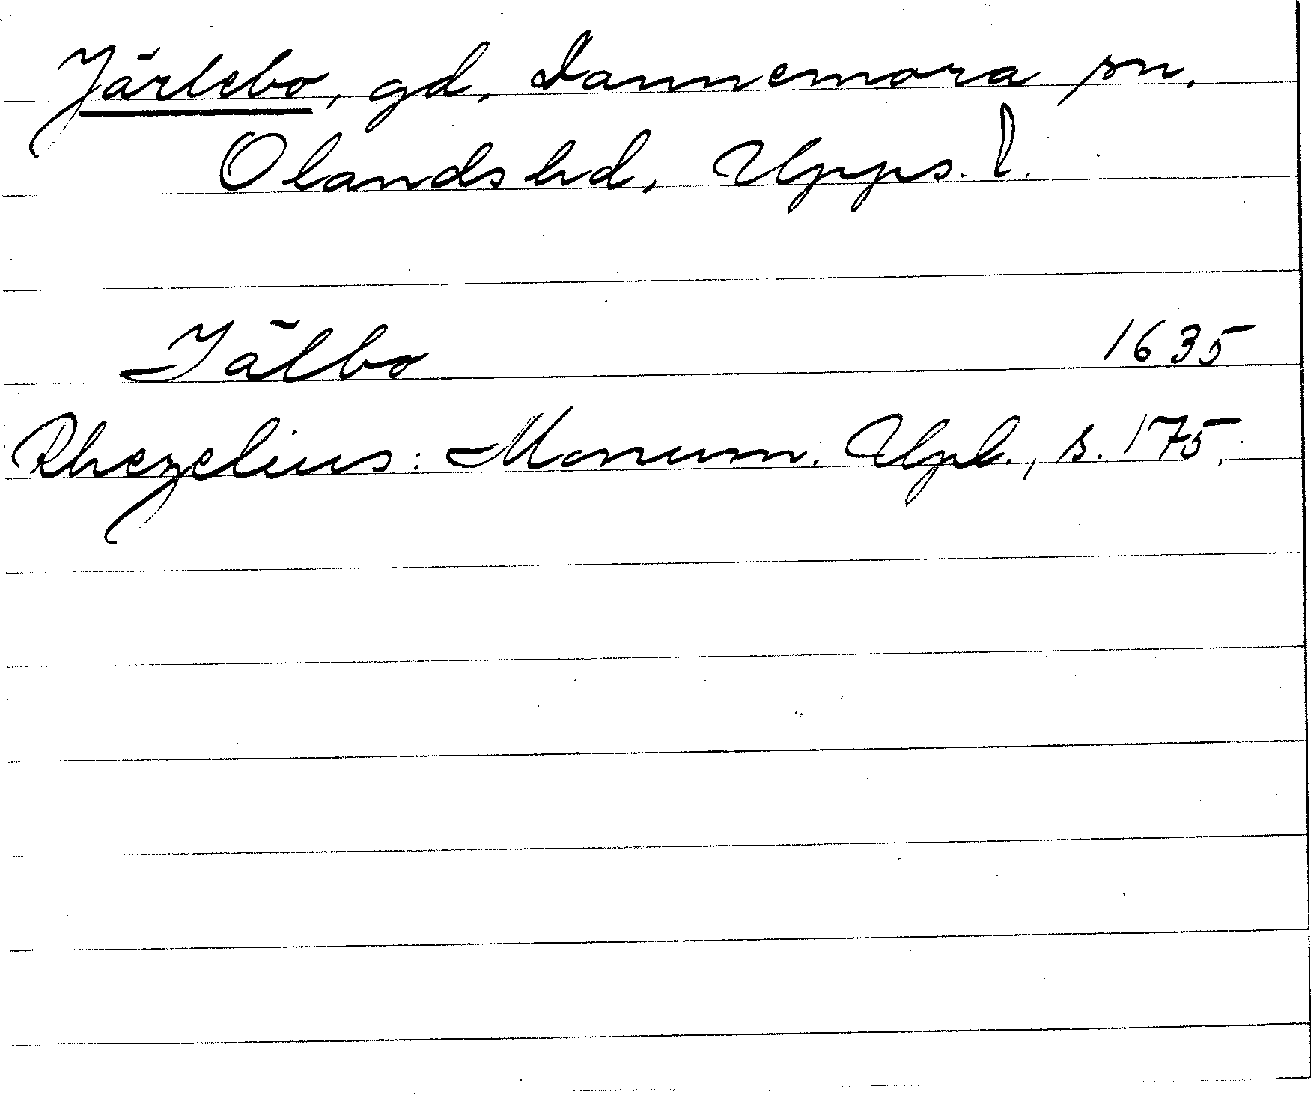 Järlebo, gd, Dannemora sn,
Olands hd, Upps. l.
Iälbo 1635
Rhezelius: Monum. Upl., s. 175.